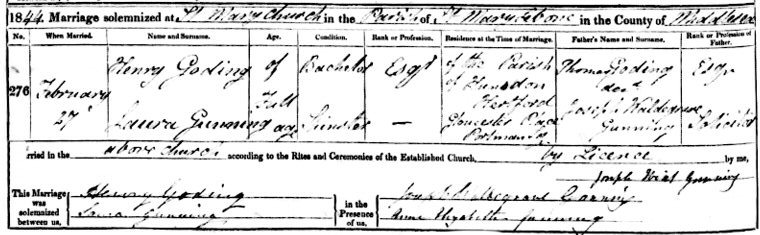 1844 Marriage solemnized at St Mary Church in the Parish of St Mary lebone in the County of Middlesex
No. When Married. Name and Surname. Age. Condition. Rank or Profession. Residence at the Time of Marriage. Father's Name and Surname. Rank or Profession of Father.
276 February 27 Henry Goding of Bachelor Esqr of the Parish of Hunsdon Hertford Thomas Goding decd Esqr
Laura Gunning Full age Spinster — Gloucester Place Portman Sq Joseph Waldegrave Gunning Solicitor
rried in the above church according to the Rites and Ceremonies of the Established Church, by Licence by me,
Joseph Gunning
This Marriage was solemnized between us, Henry Goding Laura Gunning in the Presence of us, Joseph Waldegrave Gunning Anne Elizabeth Gunning